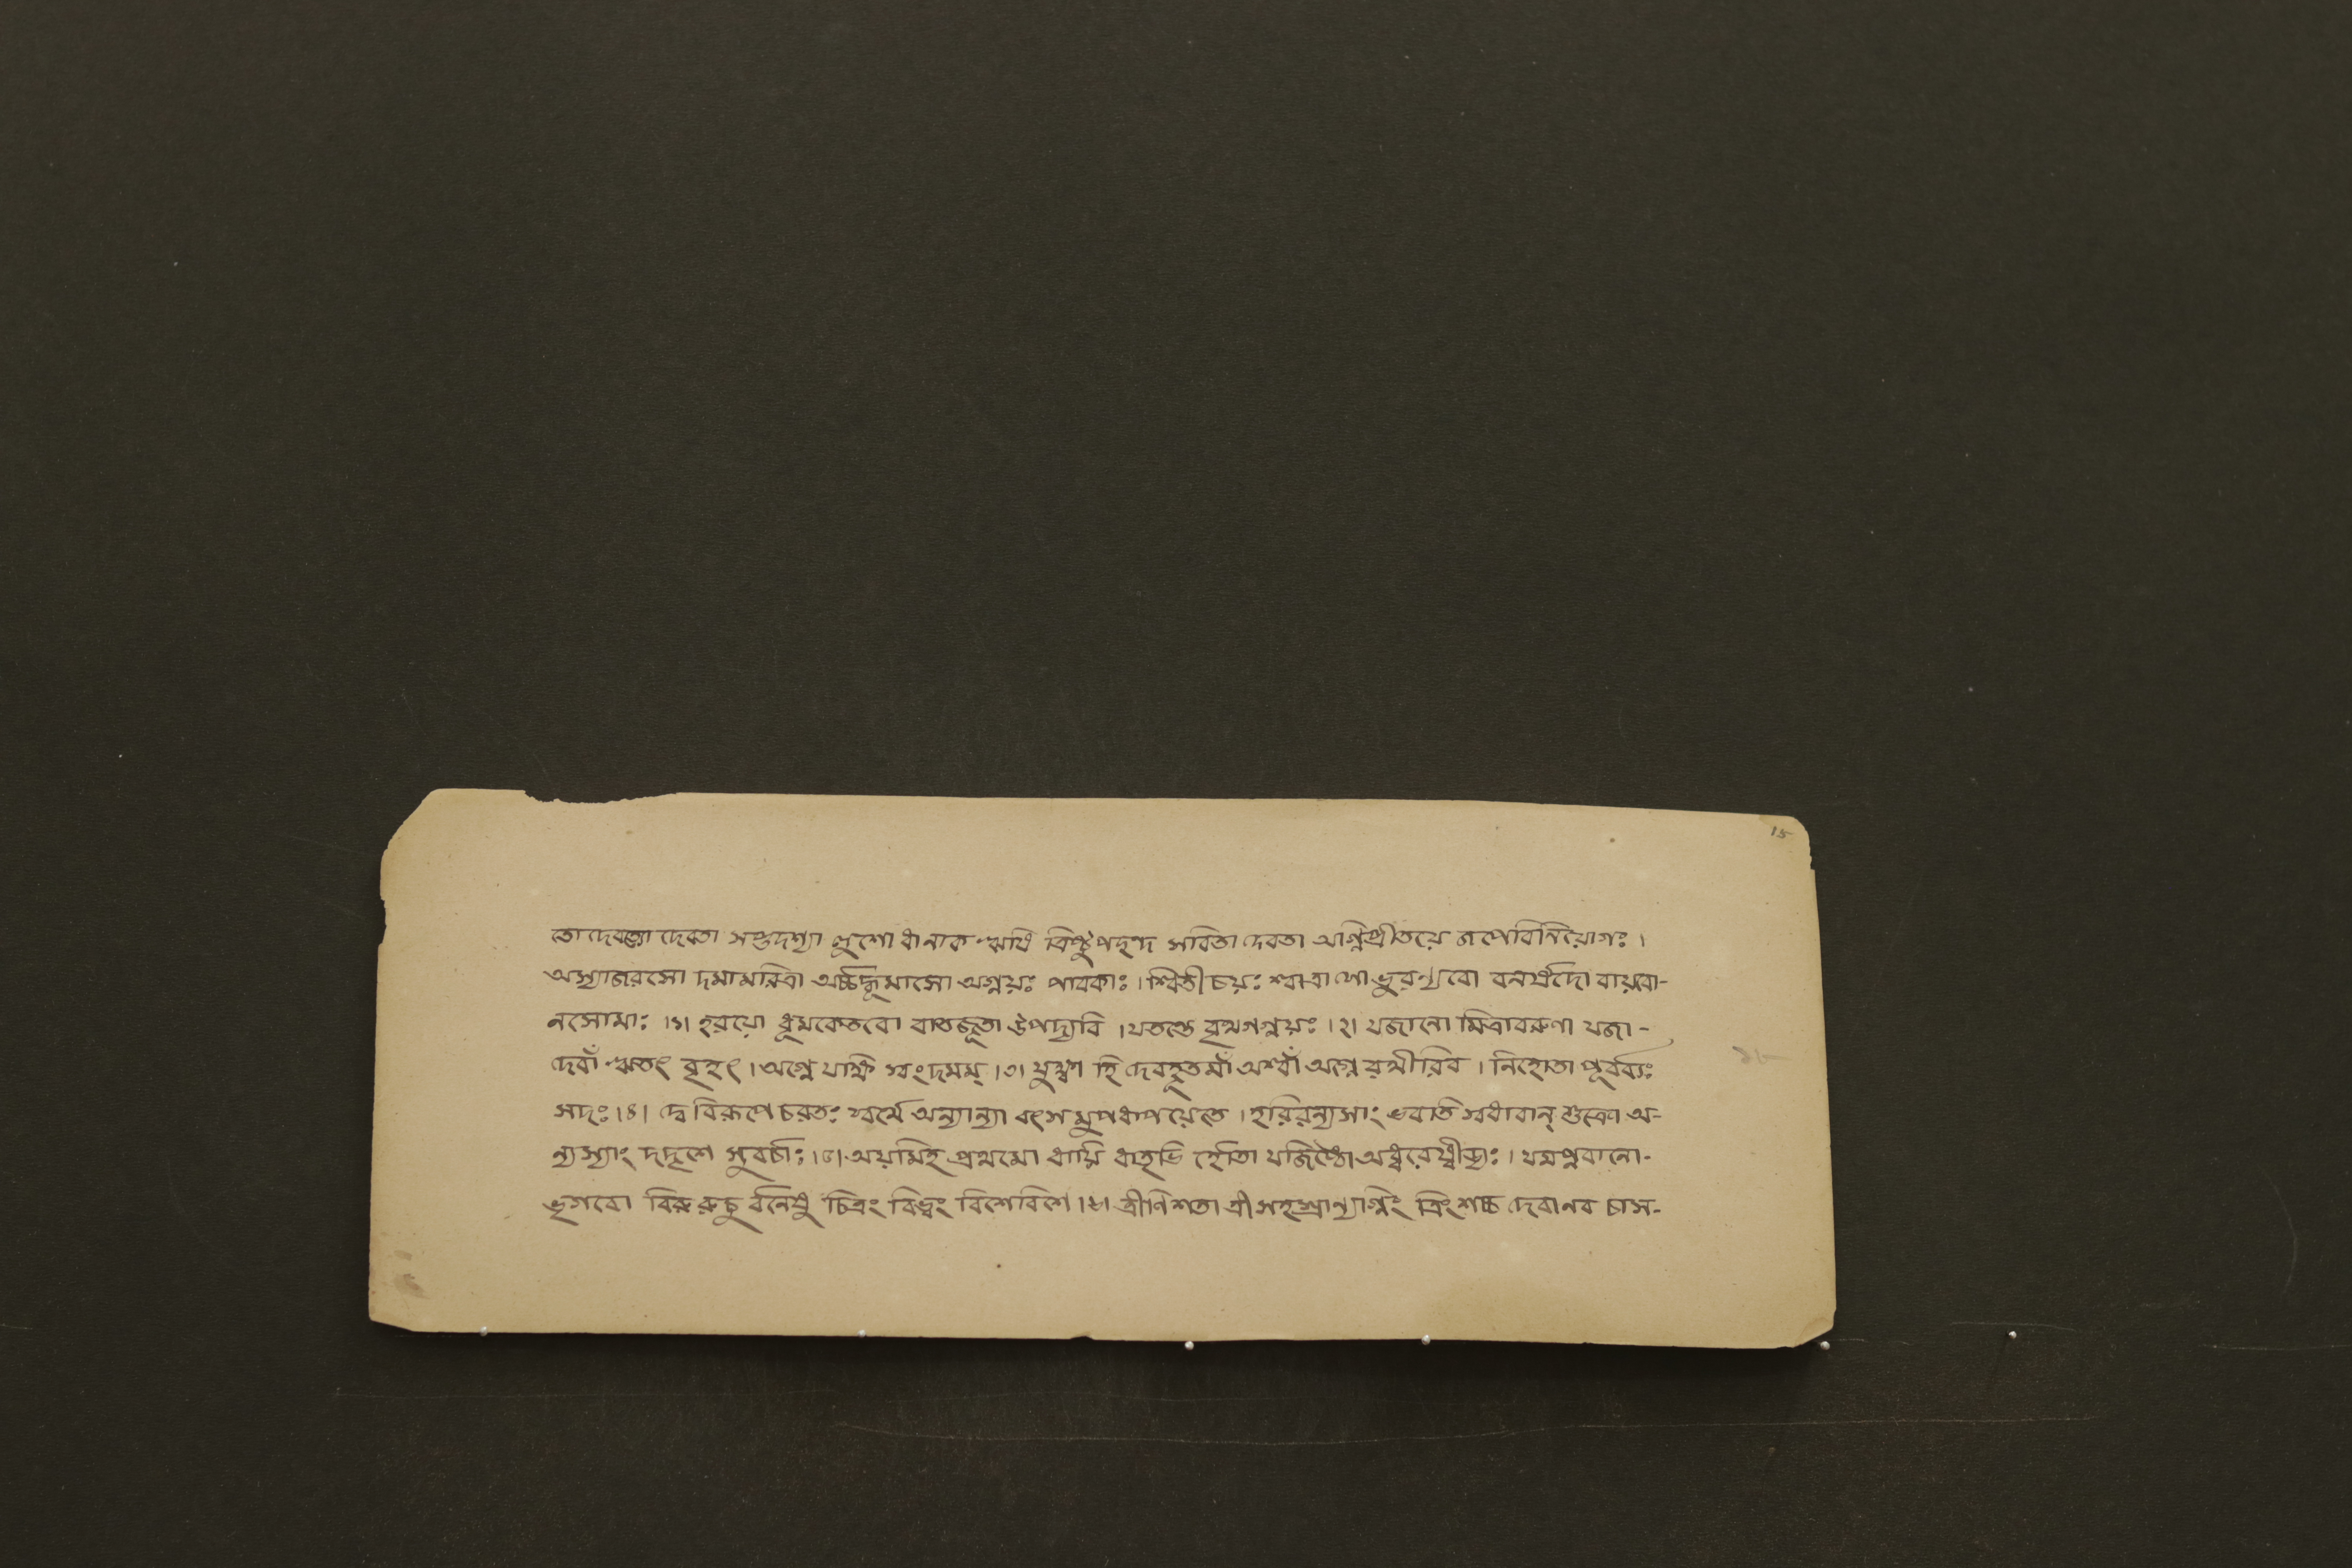 15
তো দেবত্যা দেবতা সপ্তদশ্যা লুশো ধানাক ঋষি ত্রিষ্টুপছন্দ সবিতা দেবতা অগ্নিপ্রীতয়ে জপেবিনিয়োগঃ ।
অস্যাজরসো দমামরিত্রা অর্চ্চদ্ধূমাসো অগ্নয়ঃ পাবকাঃ । শ্বিতীচয়ঃ শ্বাত্রা সো ভুরণ্যবো বনর্ষদো বায়বো-
নসোমাঃ ।১। হরয়ো ধূমকেতবো বাতজূতা উপদ্যবি । যতন্তে বৃথগগ্নয়ঃ ।২। যজানো মিত্রাবরুণা যজা-
দেবাঁ ঋতং বৃহৎ । অগ্নে যক্ষি স্বংদমম্ ।৩। যুক্ষ্বা হি দেবহূতমাঁ অশ্বাঁ অগ্নে রথীরিব । নিহোতা পূর্ব্ব্যঃ
সদঃ ।৪। দ্বে বিরূপে চরতঃ স্বর্থে অন্যান্যা বৎস মুপধাপয়েতে । হরিরন্যস্যাং ভবতি স্বধাবান্ শুক্রো অ-
ন্যস্যাং দদৃশে সুবর্চ্চাঃ ।৫। অয়মিহ প্রথমো ধায়ি ধাতৃভি র্হোতা যজিষ্ঠো অধ্বরেষ্বীড্যঃ । যমপ্নবানো-
ভৃগবো বিরুরুচু র্বনেষু চিত্রং বিভ্বং বিশেবিশে ।৬। ত্রীণিশতা ত্রীসহস্রান্যগ্নিং ত্রিংশচ্চ দেবানব চাস-